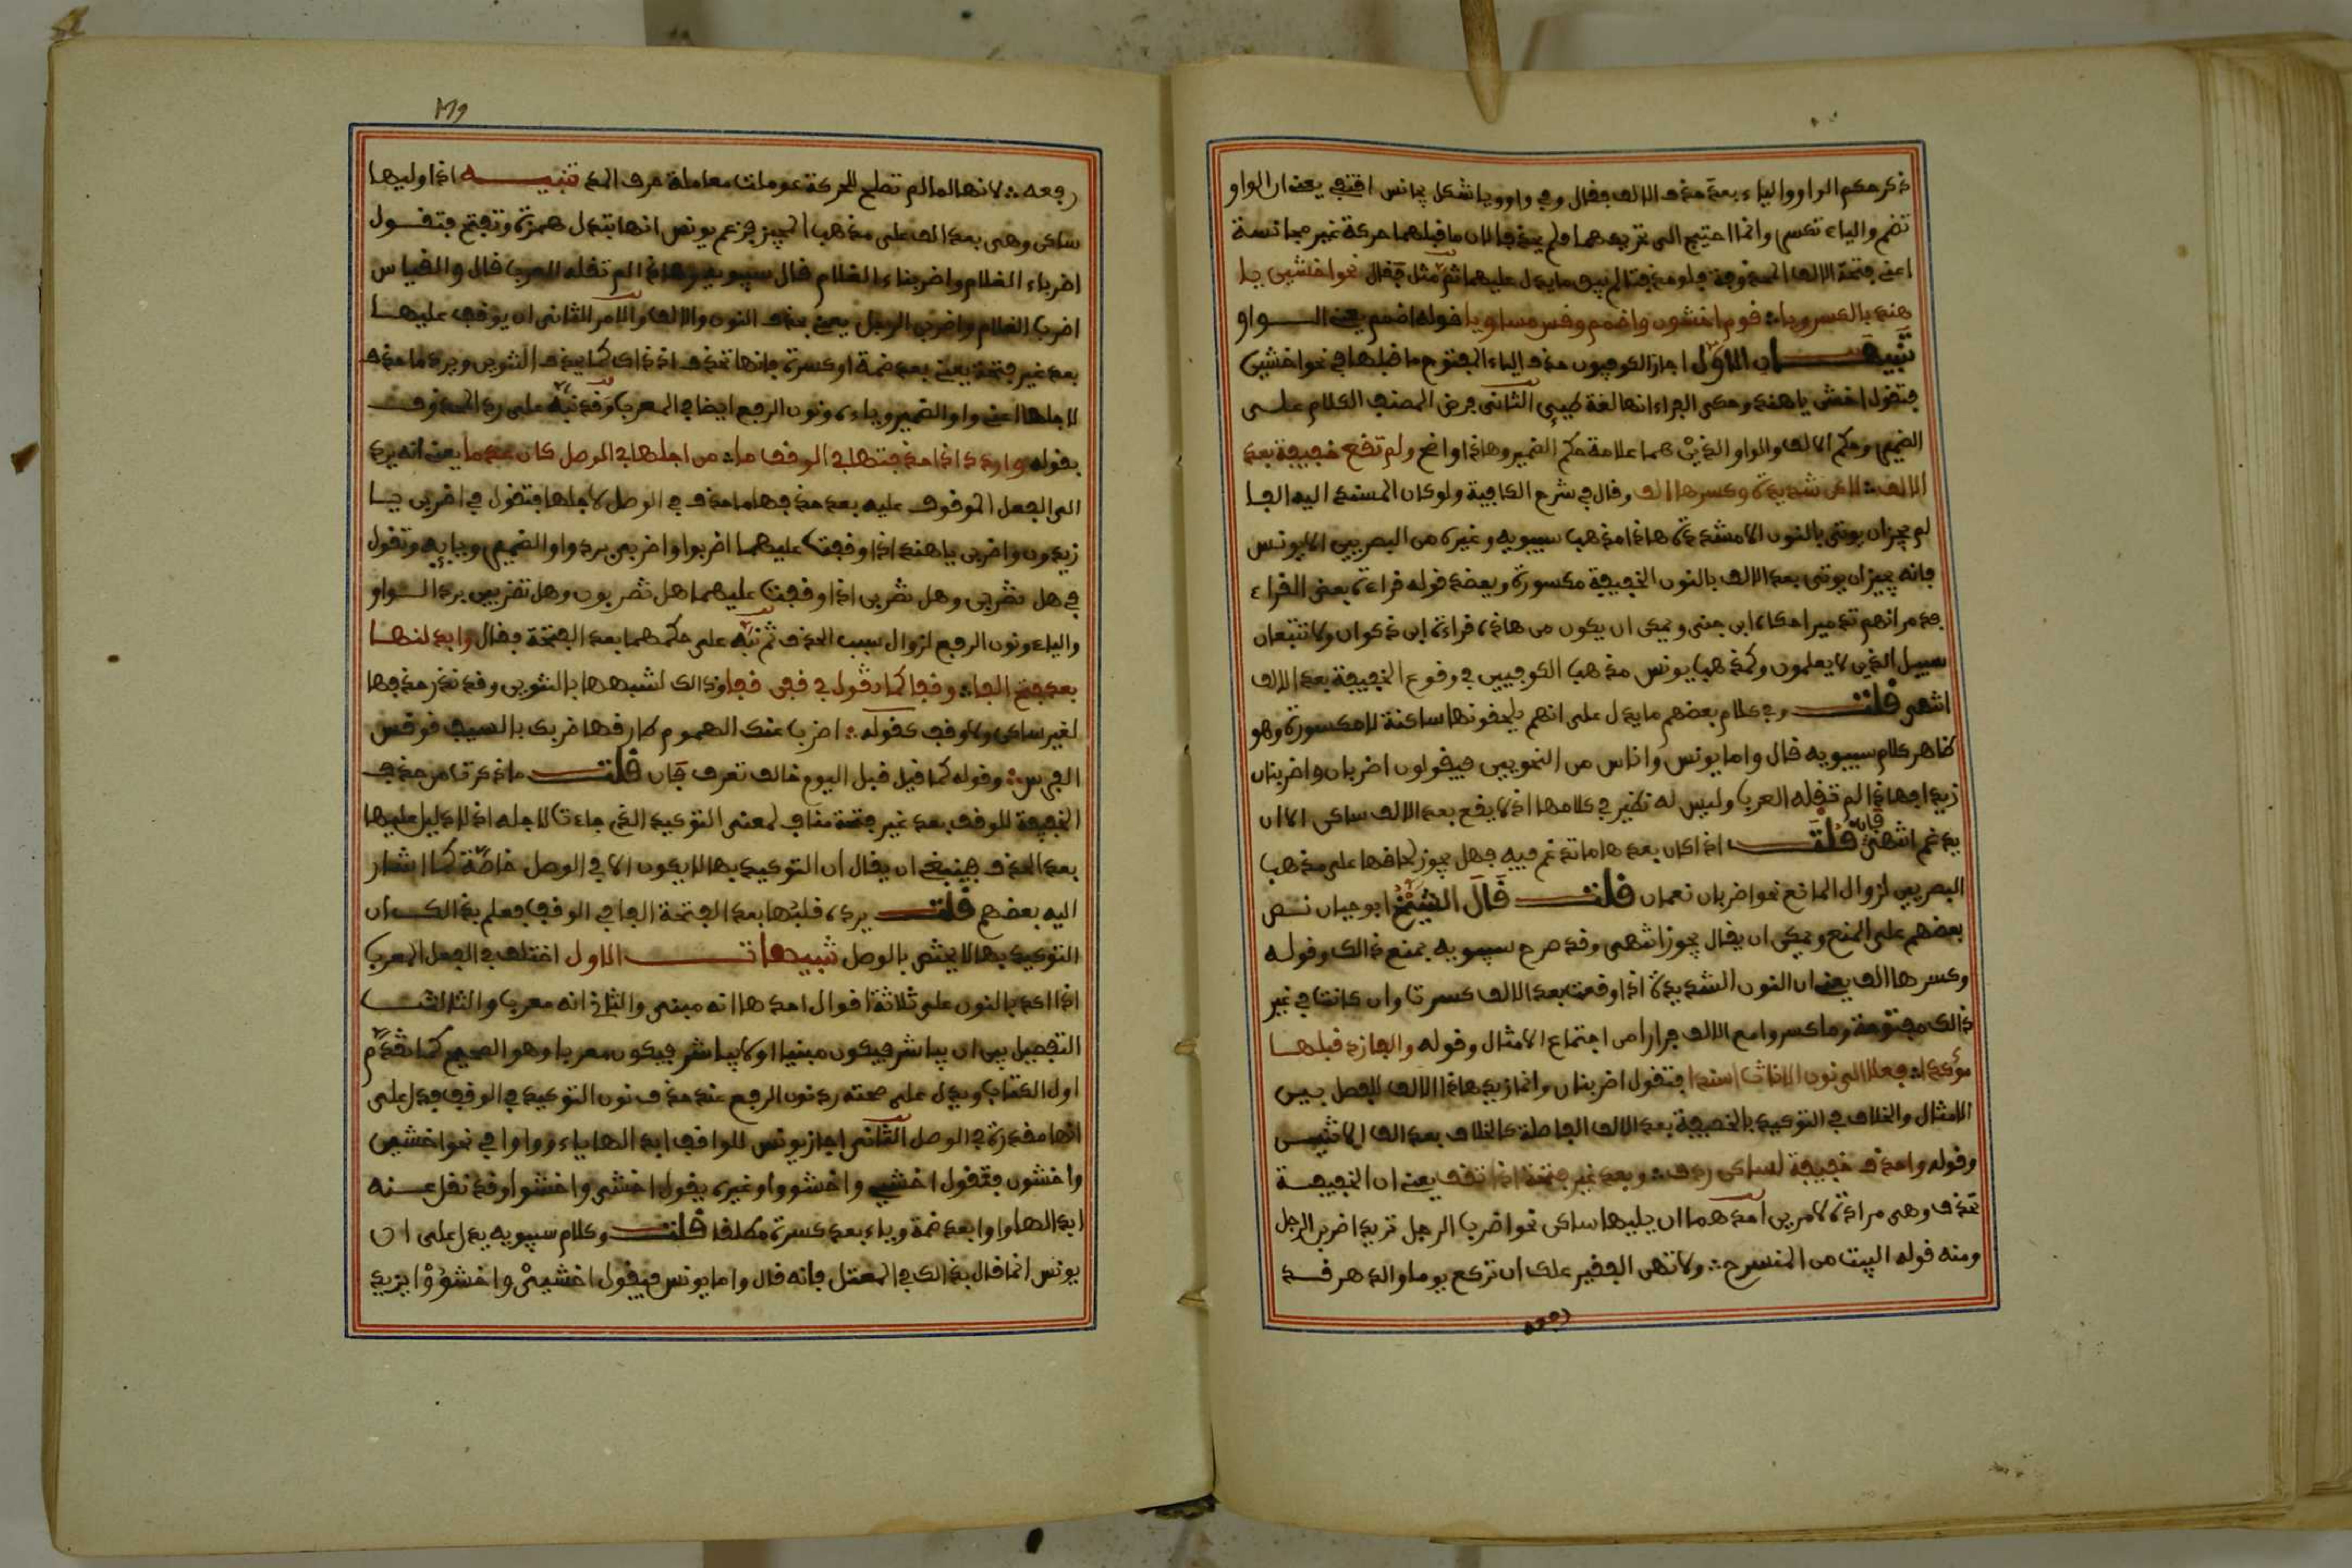 ذكر حكم الواو والياء بعد حذف الالف فقال وفي واو ويا شكل مجانس اقتفي يعني ان الواو
تضم والياء تكسر وانما احتيج الى تحريكهما ولم يحذفا لان ما قبلهما حركة غير مجانسة
اعني فتحة الالف المحذوفة فلو حذفتا لم يبق ما يدل عليهما ثم مثل فقال نحو اخشين يا
هند بالكسر ويا قوم اخشون واضمم وقس مسويا قوله اضمم يعني الــواو
تنبيهــان الاول اجاز الكوفيون حذف الياء المفتوح ما قبلها في نحو اخشين
فتقول اخشن يا هند وحكى الفراء انها لغة طيئ الثاني فرض المصنف الكلام على
الضمير وحكم الالف والواو الذين هما علامة حكم الضمير وهاذا واضح ولم تقع خفيفة بعد
الالف لاكن شديدة وكسرها الف وقال في شرح الكافية ولو كان المسند اليه الفا
لم يجز ان يوتى بالنون الا مشددة هاذا مذهب سيبويه وغيره من البصريين الا يونس
فانه يجيز ان يوتى بعد الالف بالنون الخفيفة مكسورة ويعضد قوله قراءة بعض القراء
فدمرانهم تدميرا حكاه ابن جني ويمكن ان يكون من هاذا قراءة ابن ذكوان ولا تتبعان
سبيل الذين لا يعلمون وكمذهب يونس مذهب الكوفيين في وقوع الخفيفة بعد الالف
انتهى قلت وفي كلام بعضهم ما يدل على انهم يلحقونها ساكنة لا مكسورة وهو
ظاهر كلام سيبويه قال واما يونس واناس من النحويين فيقولون اضربان واضربنان
زيدا فهاذا لم تقله العرب وليس له نظير في كلامها اذ لا يقع بعد الالف ساكن الا ان
يدغم انتهى فان قلت اذا كان بعدها ما تدغم فيه فهل يجوز لحاقها على مذهب
البصريين لزوال المانع نحو اضربان نعمان قلت قال الشيخ ابو حيان نــص
بعضهم على المنع ويمكن ان يقال يجوز انتهى وقد صرح سيبويه بمنع ذالك وقوله
وكسرها الف يعني ان النون الشديدة اذا وقعت بعد الالف كسرت وان كانت في غير
ذالك مفتوحة وما كسروا مع الالف فرارا من اجتماع الامثال وقوله والفا زد قبلها
موكدا فعلا الى نون الاناث اسندا فتقول اضربنان وانما زيد هاذا الالف للفصل بيــن
الامثال والخلاف في التوكيد بالخفيفة بعد الالف الفاصلة كالخلاف بعد الف الاثنيــن
وقوله واحذف خفيفة لساكن ردف وبعد غير فتحة اذا تقف يعني ان الخفيفــة
تحذف وهي مرادة لامرين احدهما ان يليها ساكن نحو اضرب الرجل تريد اضربن الرجل
ومنه قوله البيت من المنسرح ولا تهن الفقير علك ان تركع يوما والدهر قــد
رفعه
رفعه لانها لما لم تصلح للحركة عوملت معاملة حرف المد تنبيــه اذا وليها
ساكن وهي بعد الف على مذهب المجيز فزعم يونس انها تبدل همزة وتفتح فتقــول
اضرباء الغلام واضربناء الغلام قال سيبويه وهاذا لم تقله العرب قال والقياس
اضرب الغلام واضربن الرجل يعني بحذف النون والالف والامر الثاني ان يوقف عليهــا
بعد غير فتحة يعني بعد ضمة او كسرة فانها تحذف اذ ذاك كما يحذف التنوين ويرد ما حذف
لاجلها اعني واو الضمير وياءه ونون الرفع ايضا في المعرب وقد نبه على رد المحذوف
بقوله واردد اذا حذفتها في الوقف ما من اجلها في الوصل كان عدما يعني انه يرد
الى الفعل الموقوف عليه بعد حذفها ما حذف في الوصل لاجلها فتقول في اضربن يــا
زيدون واضربن يا هند اذا وقفت عليهما اضربوا واضربي برد واو الضمير ويايه وتقول
في هل تضربن وهل تضربن اذا وقفت عليهما هل تضربون وهل تضربين برد الــواو
والياء ونون الرفع لزوال سبب الحذف ثم نبه على حكمهما بعد الفتحة فقال وابدلنهــا
بعد فتح الفا وقفا كما تقول في قفن قفا وذالك لشبهها بالتنوين وقد ندر حذفها
لغير ساكن ولا وقف كقوله اضرب عنك الهموم طارقها ضربك بالسيف قونس
الفرس وقوله كما قيل قبل اليوم خالف تعرف فان قلت ما ذكرت من حذف
الخفيفة للوقف بعد غير فتحة مناف لمعنى التوكيد الذي جاءت لاجله اذ لا دليل عليها
بعد الحذف فينبغي ان يقال ان التوكيد بها لا يكون الا في الوصل خاصة كما اشار
اليه بعضهم قلت يرده قلبها بعد الفتحة الفا في الوقف فعلم بذالك ان
التوكيد بها لا يختص بالوصل تنبيهات الاول اختلف في الفعل المعرب
اذا اكد بالنون على ثلاثة اقوال احدها انه مبني والثاني انه معرب والثالث
التفصيل بين ان يباشر فيكون مبنيا او لا يباشر فيكون معربا وهو الصحيح كما تقدم
اول الكتاب ويدل على صحته رد نون الرفع عند حذف نون التوكيد في الوقف فدل على
انها مقدرة في الوصل الثاني اجاز يونس للواقف ابدالها ياء وواوا في نحو اخشين
واخشون فتقول اخشيي واخشووا وغيره يقول اخشي واخشوا وقد نقل عــنه
ابدالها واوا بعد ضمة وياء بعد كسرة مطلقا قلت وكلام سيبويه يدل على ان
يونس انما قال بذالك في المعتل فانه قال واما يونس فيقول اخشيي واخشووا يزيد